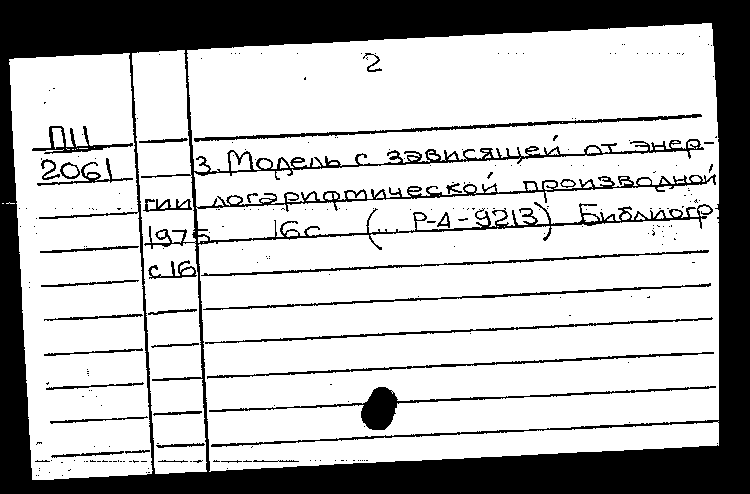 2
ПЦ
2061 3. Модель с зависящей от энер-
гии логарифмической производной
1975 16с (... Р-4-9213) Библиогр:
с 16